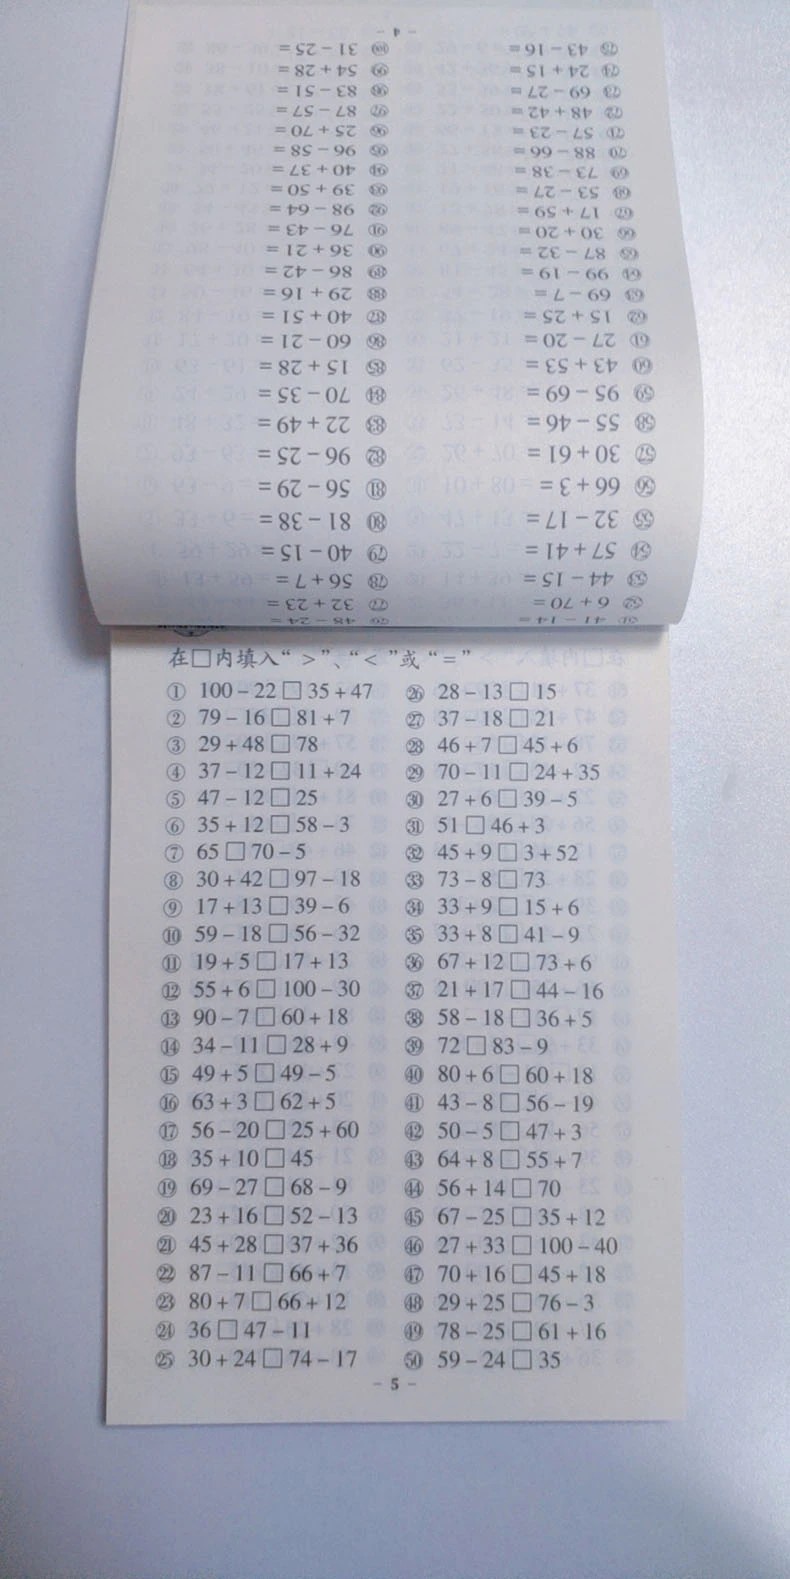 - 4 -
51 41-14=
52 6+70=
53 44-15=
54 57+41=
55 32-17=
56 66+3=
57 30+61=
58 55-46=
59 95-69=
60 43+53=
61 27-20=
62 15+25=
63 69-7=
64 99-19=
65 87-32=
66 30+20=
67 17+59=
68 53-27=
69 73-38=
70 88-66=
71 57-23=
72 48+42=
73 69-27=
74 24+15=
75 43-16=
76 48-24=
77 32+23=
78 56+7=
79 40-15=
80 81-38=
81 56-29=
82 96-25=
83 22+49=
84 70-35=
85 15+28=
86 60-21=
87 40+51=
88 29+16=
89 86-42=
90 36+21=
91 76-43=
92 98-64=
93 39+50=
94 40+37=
95 96-58=
96 25+70=
97 87-57=
98 83-51=
99 54+28=
100 31-25=
在□内填入“>”、“<”或“=”
① 100-22□35+47
② 79-16□81+7
③ 29+48□78
④ 37-12□11+24
⑤ 47-12□25
⑥ 35+12□58-3
⑦ 65□70-5
⑧ 30+42□97-18
⑨ 17+13□39-6
⑩ 59-18□56-32
⑪ 19+5□17+13
⑫ 55+6□100-30
⑬ 90-7□60+18
⑭ 34-11□28+9
⑮ 49+5□49-5
⑯ 63+3□62+5
⑰ 56-20□25+60
⑱ 35+10□45
⑲ 69-27□68-9
⑳ 23+16□52-13
㉑ 45+28□37+36
㉒ 87-11□66+7
㉓ 80+7□66+12
㉔ 36□47-11
㉕ 30+24□74-17
㉖ 28-13□15
㉗ 37-18□21
㉘ 46+7□45+6
㉙ 70-11□24+35
㉚ 27+6□39-5
㉛ 51□46+3
㉜ 45+9□3+52
㉝ 73-8□73
㉞ 33+9□15+6
㉟ 33+8□41-9
㊱ 67+12□73+6
㊲ 21+17□44-16
㊳ 58-18□36+5
㊴ 72□83-9
㊵ 80+6□60+18
㊶ 43-8□56-19
㊷ 50-5□47+3
㊸ 64+8□55+7
㊹ 56+14□70
㊺ 67-25□35+12
㊻ 27+33□100-40
㊼ 70+16□45+18
㊽ 29+25□76-3
㊾ 78-25□61+16
㊿ 59-24□35
- 5 -